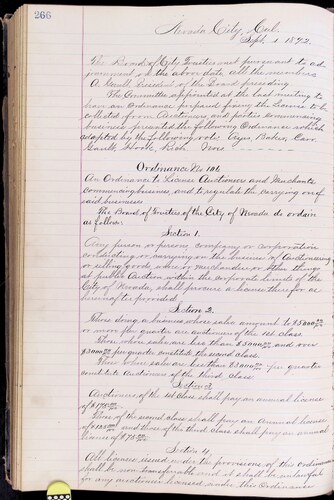 266
Nevada City, Cal.
Sept. 1 1892.
The Board of City Trustees met pursuant to ad-
journment on the above date all the members
A. Gault President of the Board presiding
The Committee appointed at the last meeting to
have an Ordinance prepared fixing the License to be
collected from Auctioneers, and parties commencing
business presented the following Ordinance which
adopted by the following vote: Ayes, Baker, Carr
Gault, Hook, Rich Noes
Ordinance No. 106
An Ordinance to License Auctioneers and Merchants
commencing business, and to regulate the carrying on of
said businesses
The Board of Trustees of the City of Nevada do ordain
as follows:
Section 1.
Any person or persons, company or corporation
conducting or carrying on the business of Auctioneering
or selling goods, wares or merchandise, or other things
at public Auction within the corporate limits of the
City of Nevada, shall procure a license therefor as
hereinafter provided
Section 2.
Those doing a business whose sales amount to $5000
or more per quarter are auctioneers of the 1st class
Those whose sales are less than $5000 and over
$3000 per quarter constitute the second class
Those whose sales are less than $3000 per quarter
constitute Auctioneers of the third class
Section 3
Auctioneers of the 1st class shall pay an annual license
of $175
Those of the second class shall pay an Annual license
of $125 and those of the third class shall pay an annual
license of $75
Section 4
All licenses issued under the provisions of this Ordinance
shall be non transferable and it shall be unlawful
for any auctioneer licensed under this Ordinance